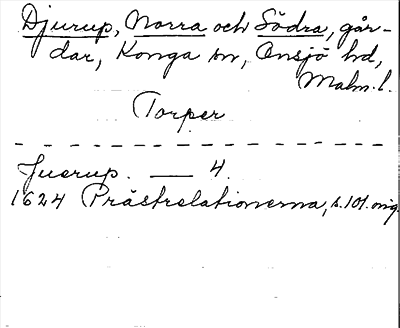 Djurup, Norra och Södra, går-
dar, Konga sn, Onsjö hd,
Malm. l.
Torper
Juerup. — 4.
1624 Prästrelationerna, s. 101. orig.